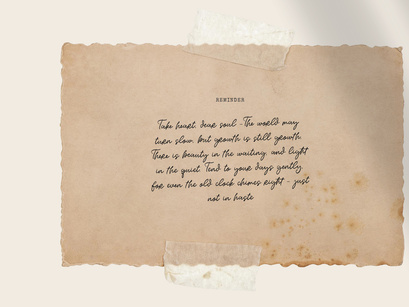 REMINDER
Take heart, dear soul - The world may
turn slow but growth is still growth
There is beauty in the waiting and light
in the quiet Tend to your days gently
for even the old clock chimes right - just
not in haste